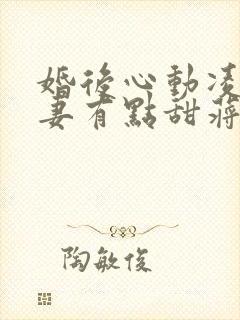 婚後心動凌
妻有點甜蔣
陶敏俊